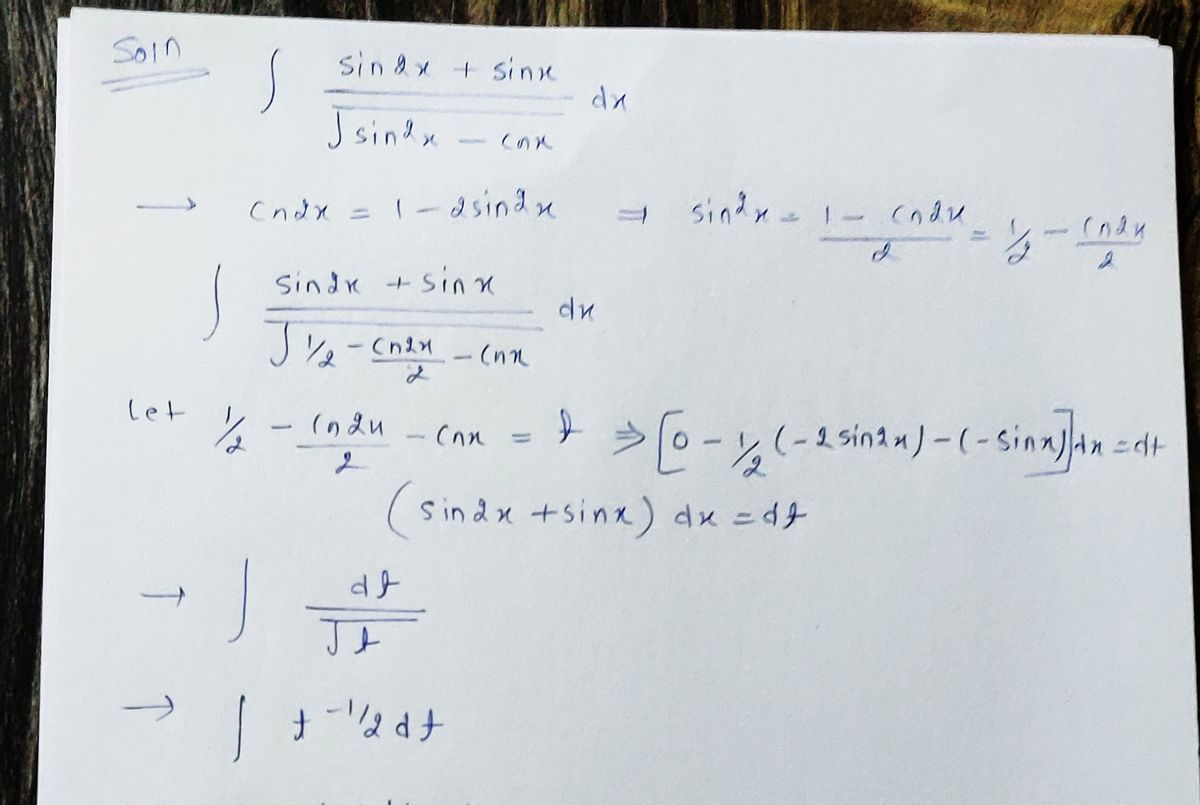 Soln
∫ (sin2x + sinx) / √(sin²x − cosx) dx
→ cos2x = 1 − 2sin²x ⇒ sin²x = (1 − cos2x)/2 = 1/2 − cos2x/2
∫ (sin2x + sinx) / √(1/2 − cos2x/2 − cosx) dx
let 1/2 − cos2x/2 − cosx = t ⇒ [0 − 1/2 (−2sin2x) − (−sinx)]dx = dt
(sin2x + sinx) dx = dt
→ ∫ dt/√t
→ ∫ t^(−1/2) dt